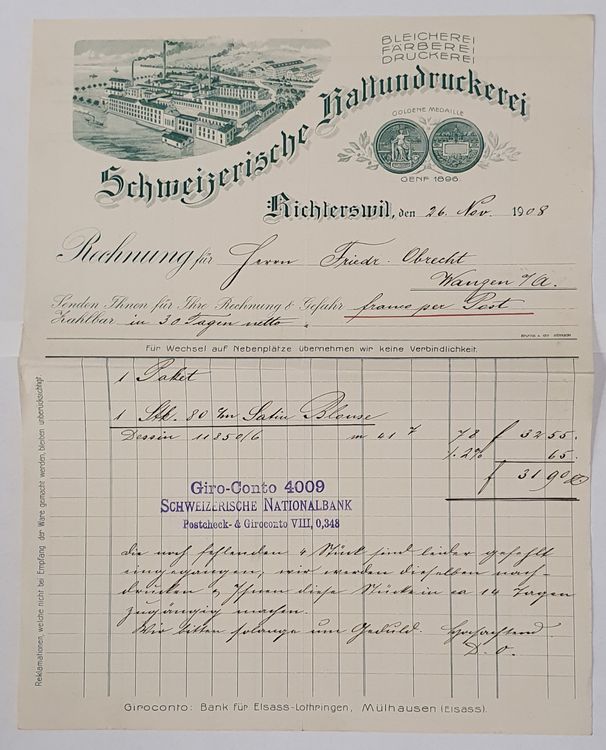 BLEICHEREI
FÄRBEREI
DRUCKEREI
Schweizerische Kattundruckerei
GOLDENE MEDAILLE
GENF 1896
Richterswil, den 26. Nov. 1908
Rechnung für Herrn Friedr. Obrecht
Wangen a/A.
Senden Ihnen für Ihre Rechnung & Gefahr franco per Post
Zahlbar in 30 Tagen netto
Für Wechsel auf Nebenplätze übernehmen wir keine Verbindlichkeit.
Reklamationen, welche nicht bei Empfang der Ware gemacht werden, bleiben unberücksichtigt.
1 Paket
1 Stk. 80 cm Satin Blouse
Dessin 11850/6 m 41 7 78 f 32 55.
1.2% 65.
f 31 90
Giro-Conto 4009
SCHWEIZERISCHE NATIONALBANK
Postcheck- & Giroconto VIII, 0,348
die noch fehlenden 4 Stück sind leider gefehlt
eingegangen, wir werden dieselben nach-
drucken & Ihnen diese Stücke in ca 14 Tagen
zugängig machen.
Wir bitten solange um Geduld. Hochachtend
D. O.
Giroconto: Bank für Elsass-Lothringen, Mülhausen (Elsass).